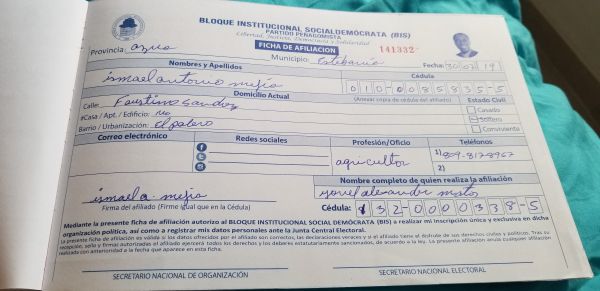 BLOQUE INSTITUCIONAL SOCIALDEMÓCRATA (BIS)
PARTIDO PEÑAGOMISTA
Libertad, Justicia, Democracia y Solidaridad
FICHA DE AFILIACION 141332
Provincia: azua Municipio: Estebania Fecha: 30/07/19
Nombres y Apellidos Cédula
ismael antonio mejia 010-0085835-5
Domicilio Actual (Anexar copia de cédula del afiliado) Estado Civil
Calle: Faustino Sandoz Casado
#Casa / Apt. / Edificio: No Soltero
Barrio / Urbanización: El palero Conviviente
Correo electrónico Redes sociales Profesión/Oficio Teléfonos
agricultor 1) 809-817-8967
2)
Nombre completo de quien realiza la afiliación
ismael a. mejia
Firma del afiliado (Firme igual que en la Cédula) Cédula: 132-0000338-5
Mediante la presente ficha de afiliación autorizo al BLOQUE INSTITUCIONAL SOCIAL DEMÓCRATA (BIS) a realizar mi inscripción única y exclusiva en dicha
organización política, así como a registrar mis datos personales ante la Junta Central Electoral.
La presente ficha de afiliación es válida si los datos ofrecidos por el afiliado son correctos, las declaraciones veraces y a el afiliado tiene el disfrute de sus derechos civiles y políticos. Tras su
recepción, sello y firmas autorizadas el afiliado ejercerá todos los derechos y los deberes estatutariamente sancionados, de acuerdo a la ley. La presente afiliación anula cualquier afiliación
realizada con anterioridad a la fecha que aparece en esta ficha.
SECRETARIO NACIONAL DE ORGANIZACIÓN SECRETARIO NACIONAL ELECTORAL